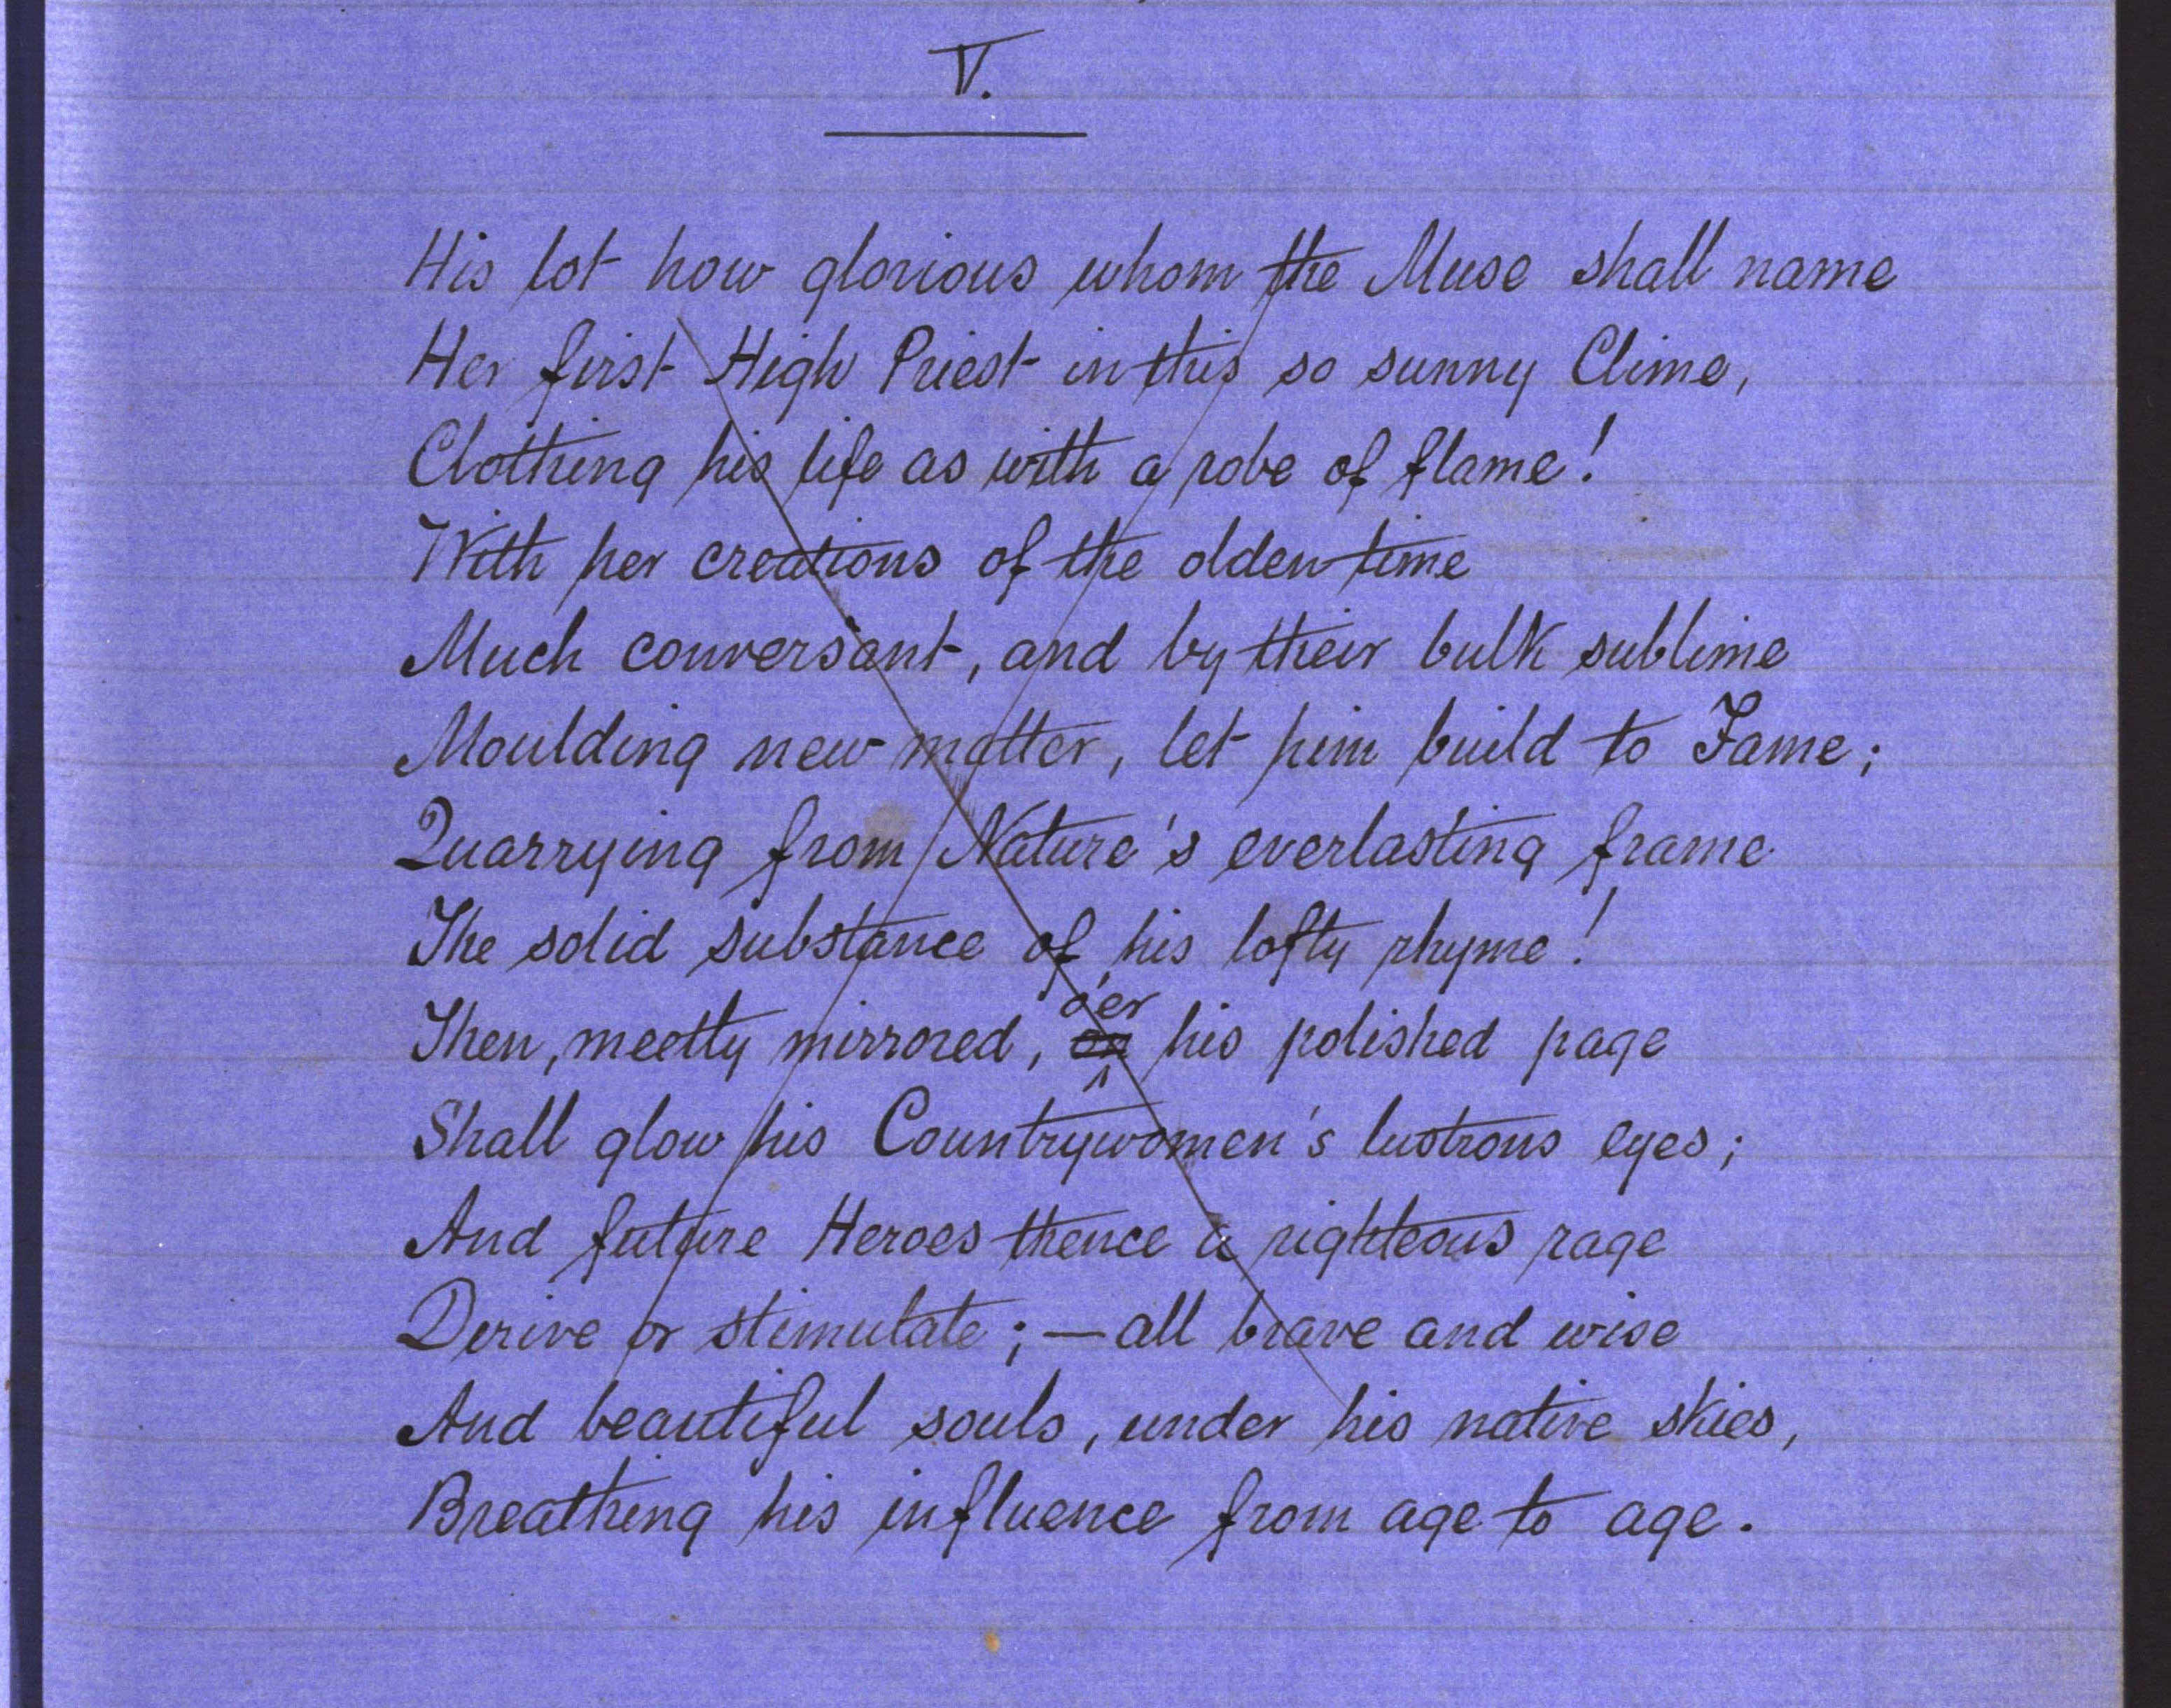 V.
His lot how glorious whom the Muse shall name
Her first High Priest in this so sunny Clime,
Clothing his life as with a robe of flame!
With her creations of the olden time
Much conversant, and by their bulk sublime
Moulding new matter, let him build to Fame;
Quarrying from Nature's everlasting frame
The solid substance of his lofty rhyme!
o'er
Then, meetly mirrored, on his polished page
Shall glow his Countrywomen's lustrous eyes;
And future Heroes thence a righteous rage
Derive or stimulate; — all brave and wise
And beautiful souls, under his native skies,
Breathing his influence from age to age.